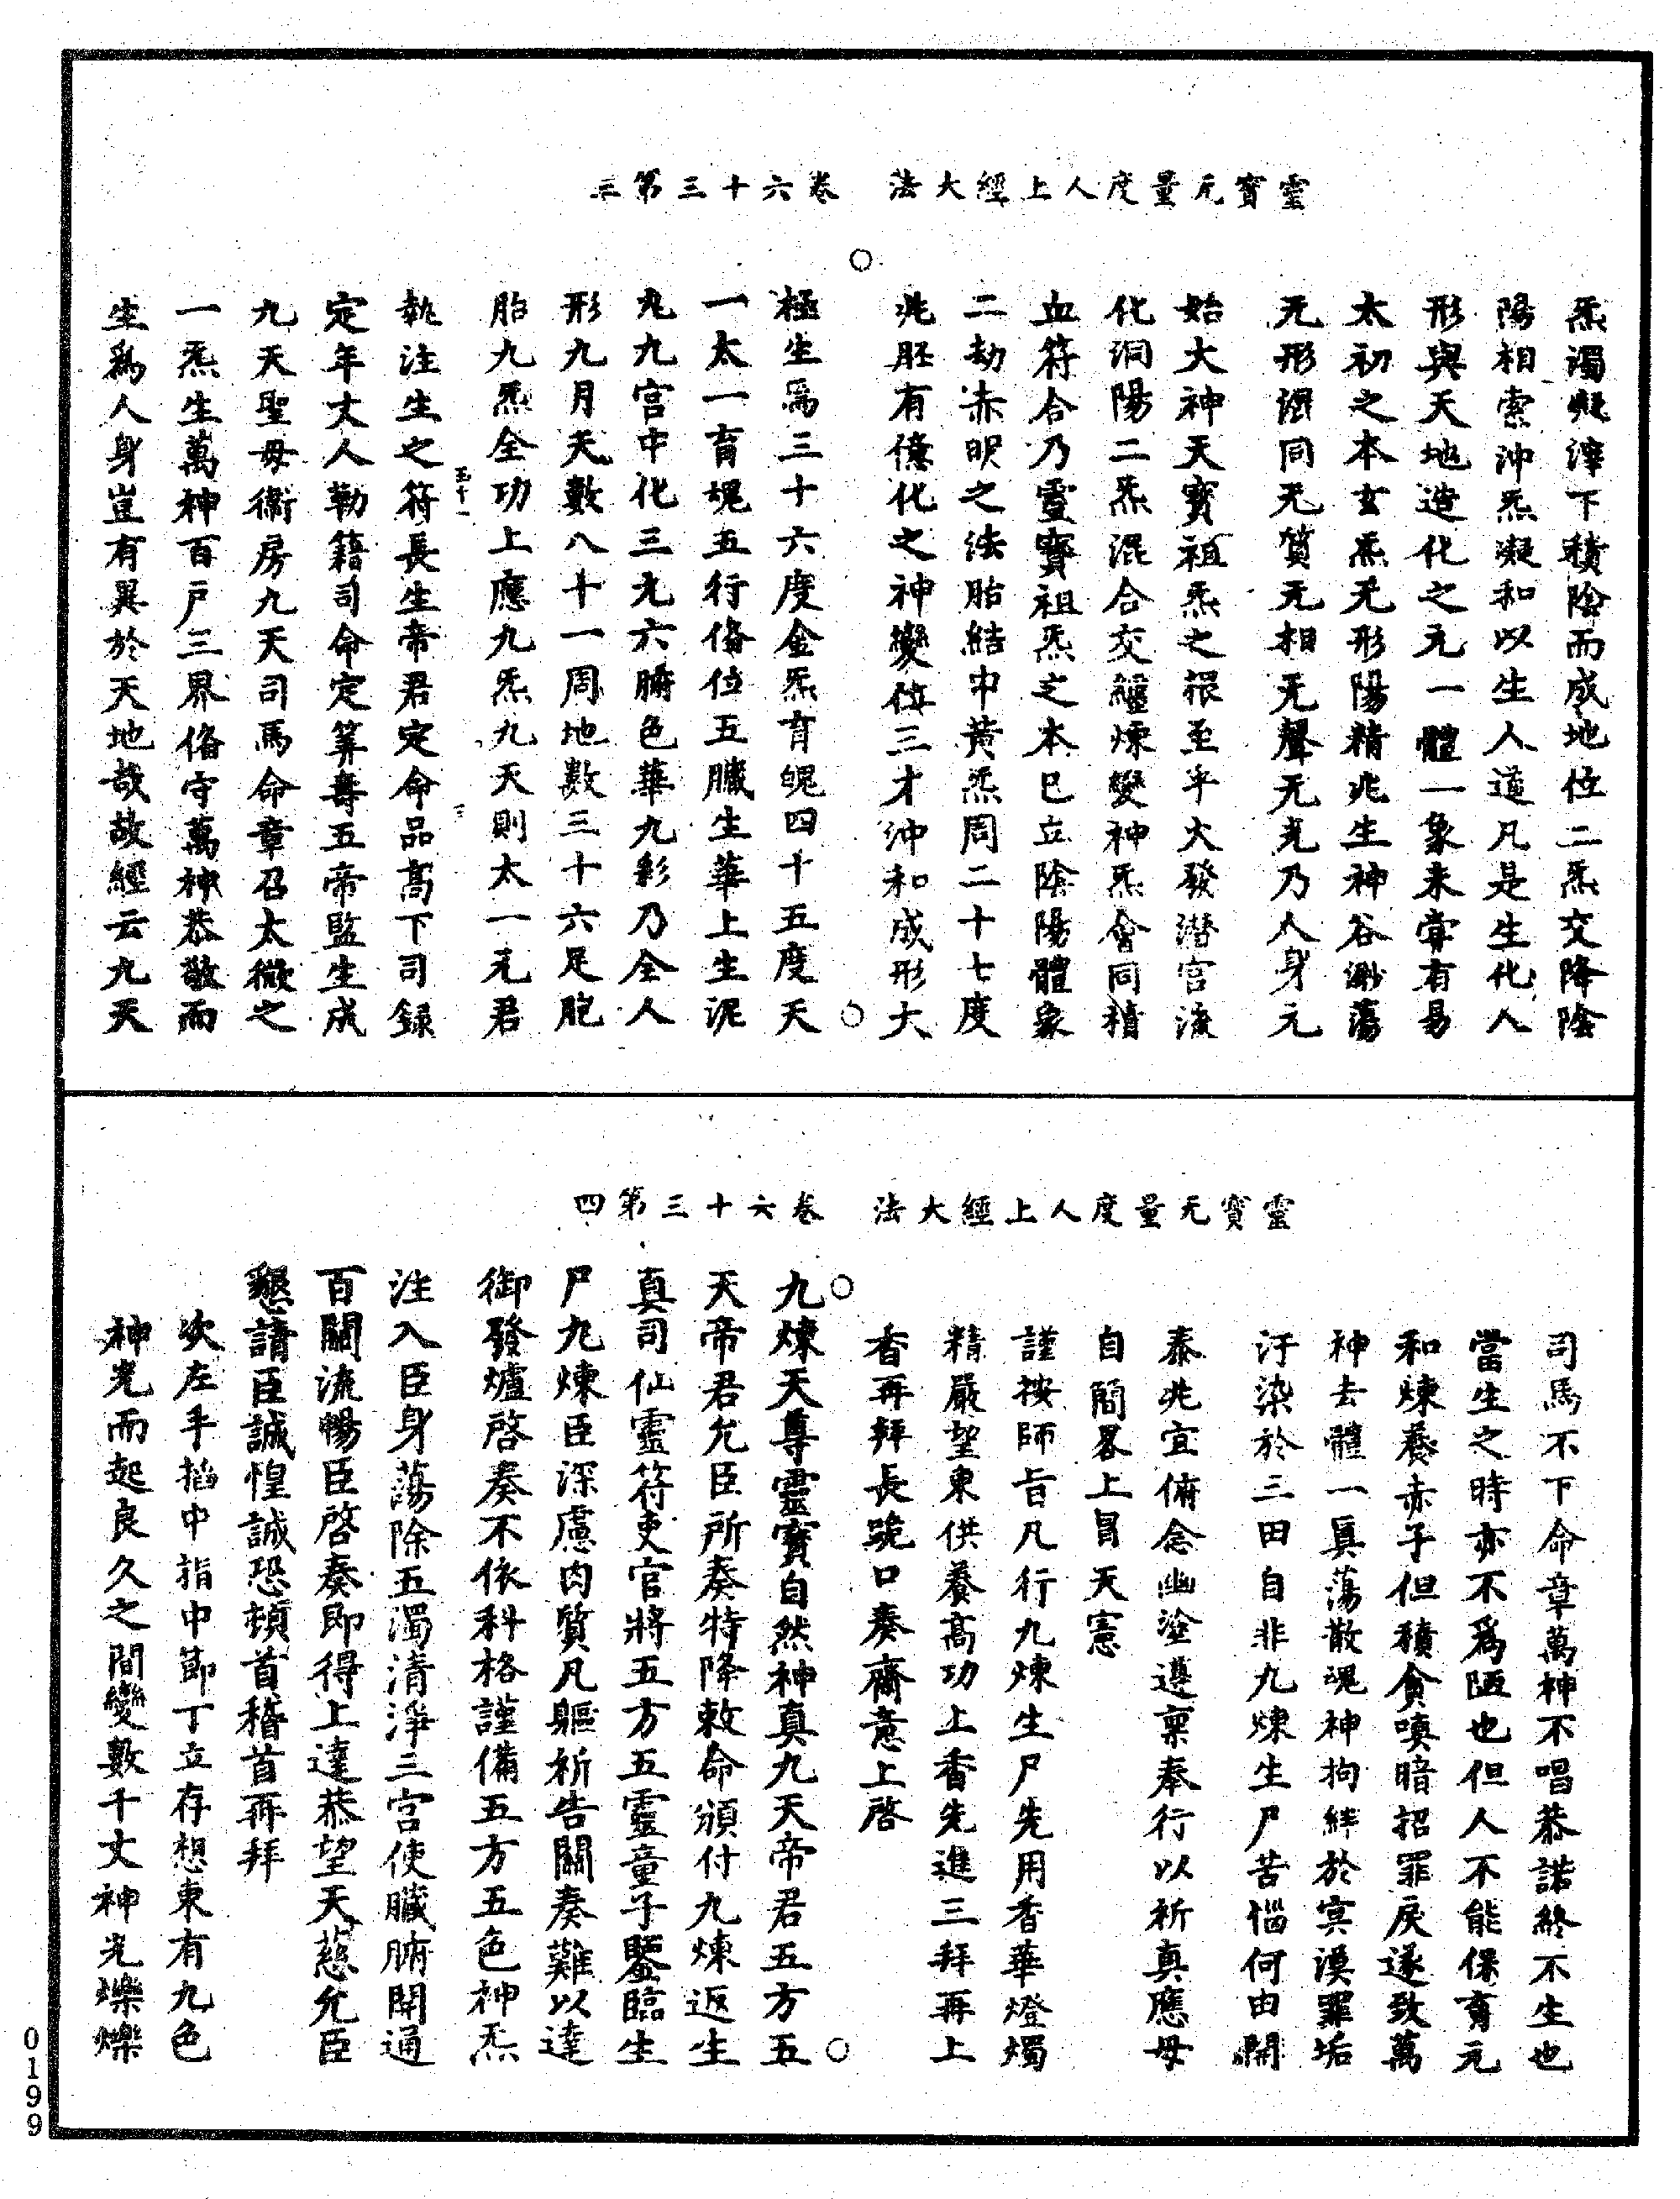 靈寶无量度人上經大法　卷六十三第三
炁濁凝滓下積陰而成地位二炁交降陰
陽相索沖炁凝和以生人道凡是生化人
形與天地造化之元一體一象未嘗有易
太初之本玄炁无形陽精兆生神谷渺蕩
无形混同无質无相无聲无光乃人身元
始大神天寶祖炁之根至乎大發潛宮流
化洞陽二炁混合交纏煉變神炁會同積
血符合乃靈寶祖炁之本已立陰陽體象
二劫赤明之法胎結中黃炁周二十七度
兆胚有億化之神變位三才沖和成形大
極生爲三十六度金炁育魄四十五度天
一太一育魂五行俻位五臟生華上生泥
丸九宮中化三元六腑色華九彩乃全人
形九月天數八十一周地數三十六足胞
胎九炁全功上應九炁九天則太一元君
執注生之符長生帝君定命品高下司錄
五十一　三
定年丈人勒籍司命定筭壽五帝監生成
九天聖母衞房九天司馬命章召太微之
一炁生萬神百戶三界俻守萬神恭敬而
生爲人身豈有異於天地哉故經云九天
靈寶无量度人上經大法　卷六十三第四
司馬不下命章萬神不唱恭諾終不生也
當生之時亦不爲陋也但人不能保育元
和煉養赤子但積貪嗔暗招罪戾遂致萬
神去體一真蕩散魂神拘絆於冥漠罪垢
汙染於三田自非九煉生尸苦惱何由開
泰兆宜俯念幽塗遵稟奉行以祈真應毋
自簡畧上冒天憲
謹按師旨凡行九煉生尸先用香華燈燭
精嚴望東供養高功上香先進三拜再上
香再拜長跪口奏齋意上啓
九煉天尊靈寶自然神真九天帝君五方五
天帝君允臣所奏特降敕命頒付九煉返生
真司仙靈符吏官將五方五靈童子鑒臨生
尸九煉臣深慮肉質凡軀祈告關奏難以達
御發爐啓奏不依科格謹備五方五色神炁
注入臣身蕩除五濁清淨三宮使臟腑開通
百關流暢臣啓奏即得上達恭望天慈允臣
懇請臣誠惶誠恐頓首稽首再拜
次左手掐中指中節丁立存想東有九色
神光而起良久之間變數千丈神光爍爍
0199